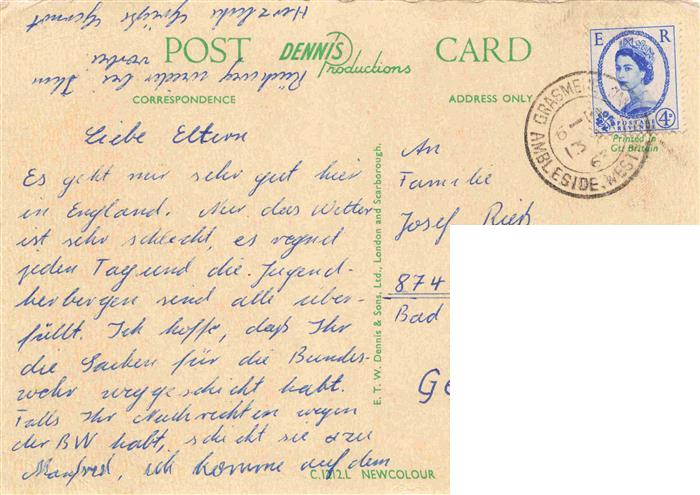 POST DENNIS Productions CARD
CORRESPONDENCE
ADDRESS ONLY
E R
POSTAGE REVENUE
4D
Printed in
Gt. Britain
GRASMERE
AMBLESIDE. WEST
Liebe Eltern
Es geht mir sehr gut hier
in England. Nur das Wetter
ist sehr schlecht, es regnet
jeden Tag und die Jugend-
herbergen sind alle über-
füllt. Ich hoffe, daß Ihr
die Sachen für die Bundes-
wehr weggeschickt habt.
Falls Ihr Nachrichten wegen
der BW habt, schickt sie zu
Manfred, ich komme auf dem
Rückweg wieder bei Ihm
vorbei
Herzliche Grüße
An
Familie
Josef
874
Bad
Ge
E. T. W. Dennis & Sons, Ltd., London and Scarborough.
C.1212.L NEWCOLOUR